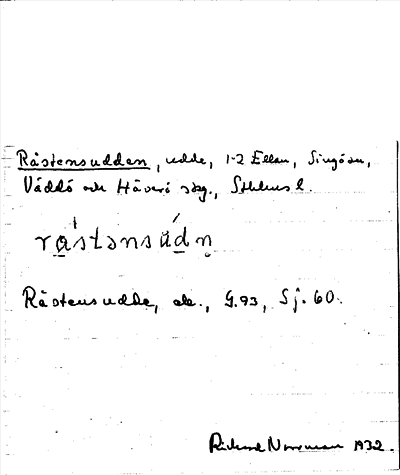 Råstensudden, udde, 1-2 Ellan, Singö sn,
Väddö och Häverö skg., Sthlms l.
råstənsúdn̥
Råstensudde, ek., G.93, Sj. 60.
Rickard Norrman 1932.